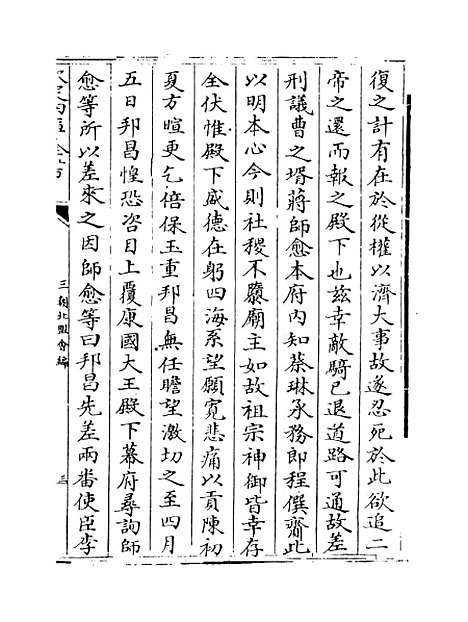 復之計有在於從權以濟大事故遂忍死於此欲追二
帝之還而報之殿下也茲幸敵騎已退道路可通故差
刑議曹之壻蔣師愈本府内知蔡琳承務即程僎齎此
以明本心今則社稷不隳廟主如故祖宗神御皆幸存
全伏惟殿下盛德在躬四海系望願寛悲痛以貢陳初
夏方暄更乞倍保玉重邦昌無任瞻望激切之至四月
五日邦昌惶恐咨目上覆康國大王殿下幕府尋詢師
愈等所以差來之因師愈等曰邦昌先差兩番使臣李
三朝北盟會編
三